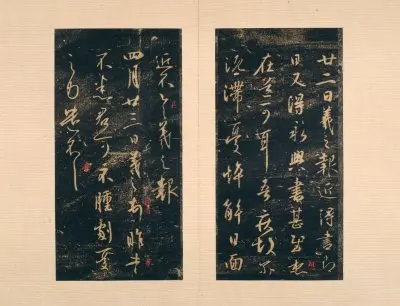 廿二日羲之報近得書即
日又得永興書甚慰想
在道可耳吾疾故爾
沉滯憂悴解日面
近不具羲之報
四月廿三日羲之頓首昨書
不悉君可不腫劇憂
之力